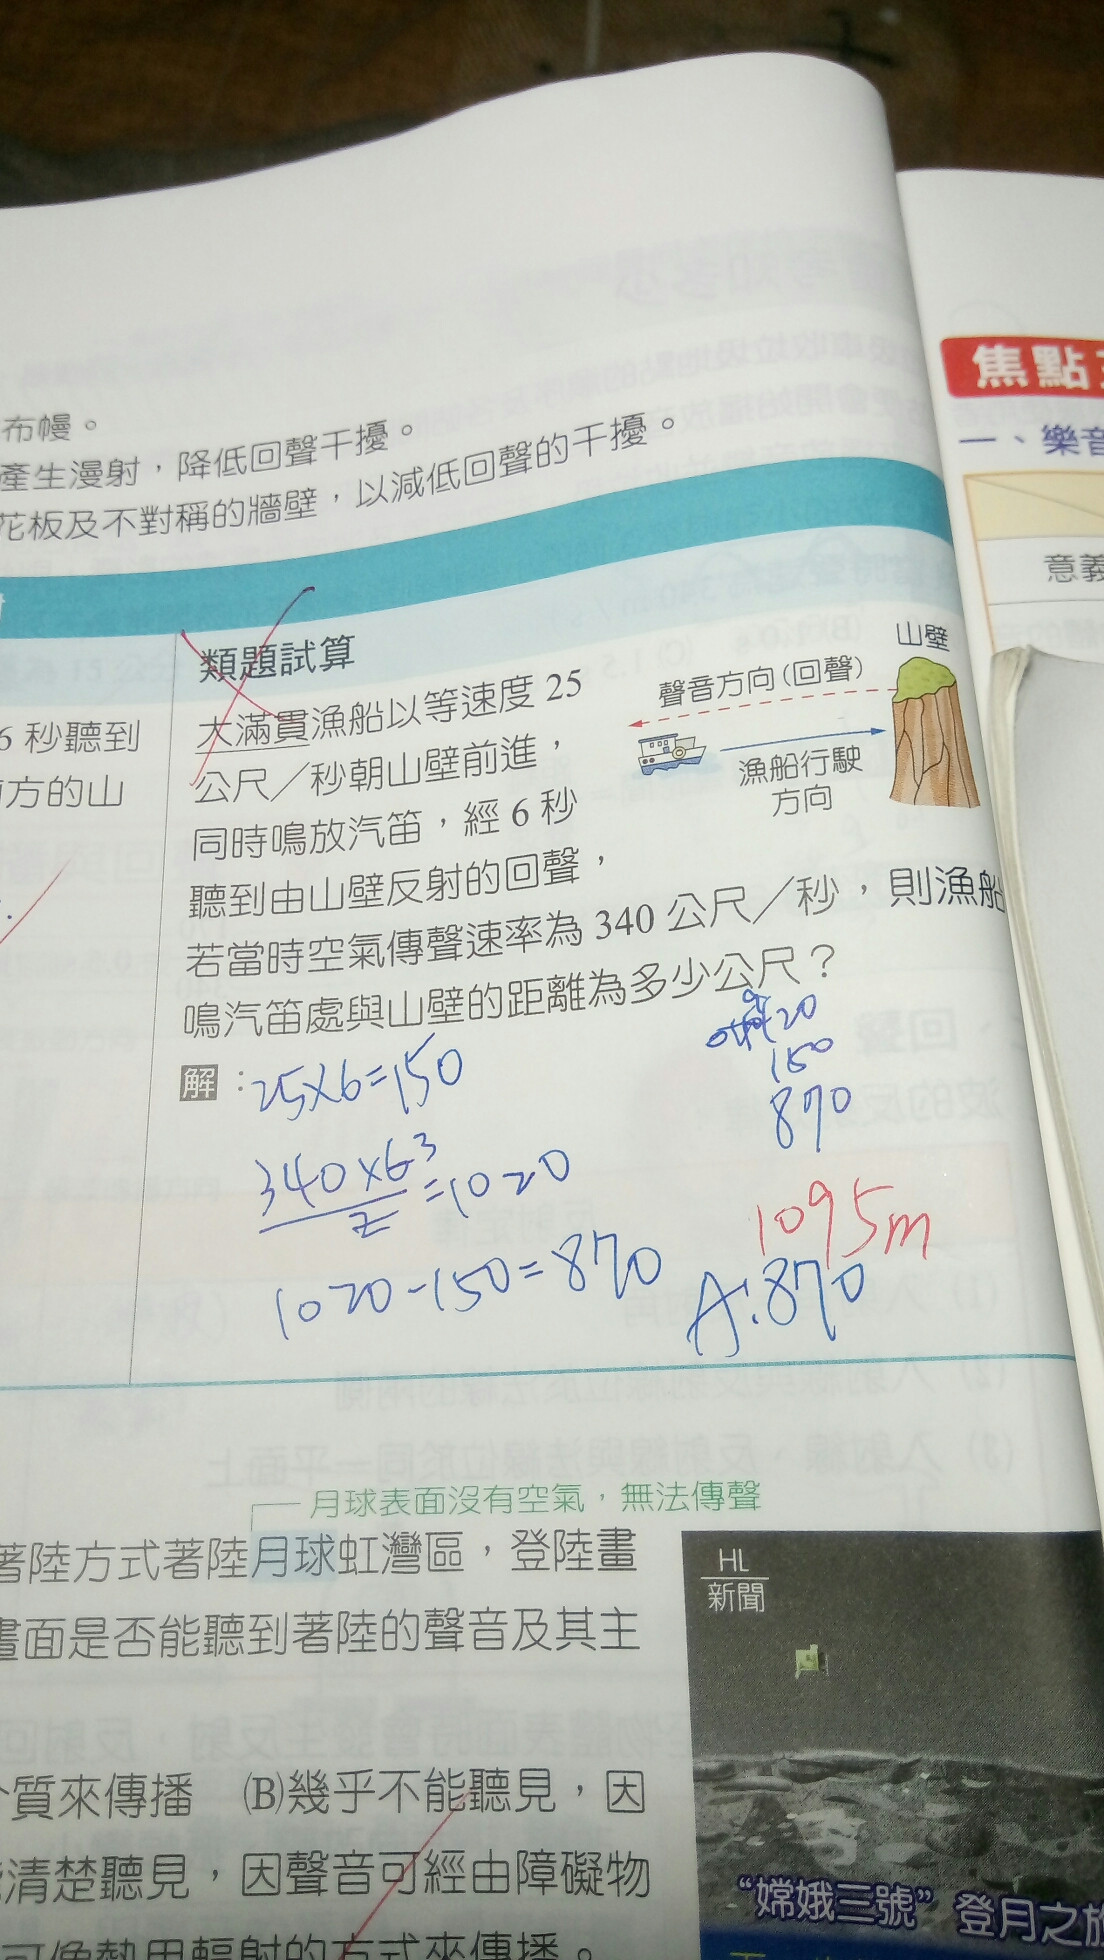 布幔。
產生漫射，降低回聲干擾。
花板及不對稱的牆壁，以減低回聲的干擾。
6 秒聽到
方的山
類題試算
大滿貫漁船以等速度 25
公尺／秒朝山壁前進，
同時鳴放汽笛，經 6 秒
聽到由山壁反射的回聲，
若當時空氣傳聲速率為 340 公尺／秒，則漁船
鳴汽笛處與山壁的距離為多少公尺？
山壁
聲音方向(回聲)
漁船行駛
方向
解：25×6=150
340×6 3
2
=1020
1020-150=870
20
150
870
1095m
A:870
月球表面沒有空氣，無法傳聲
著陸方式著陸月球虹灣區，登陸畫
畫面是否能聽到著陸的聲音及其主
質來傳播 (B)幾乎不能聽見，因
清楚聽見，因聲音可經由障礙物
可像熱用輻射的方式來傳播。
HL
新聞
“嫦娥三號”登月之旅
焦點
一、樂音
意義